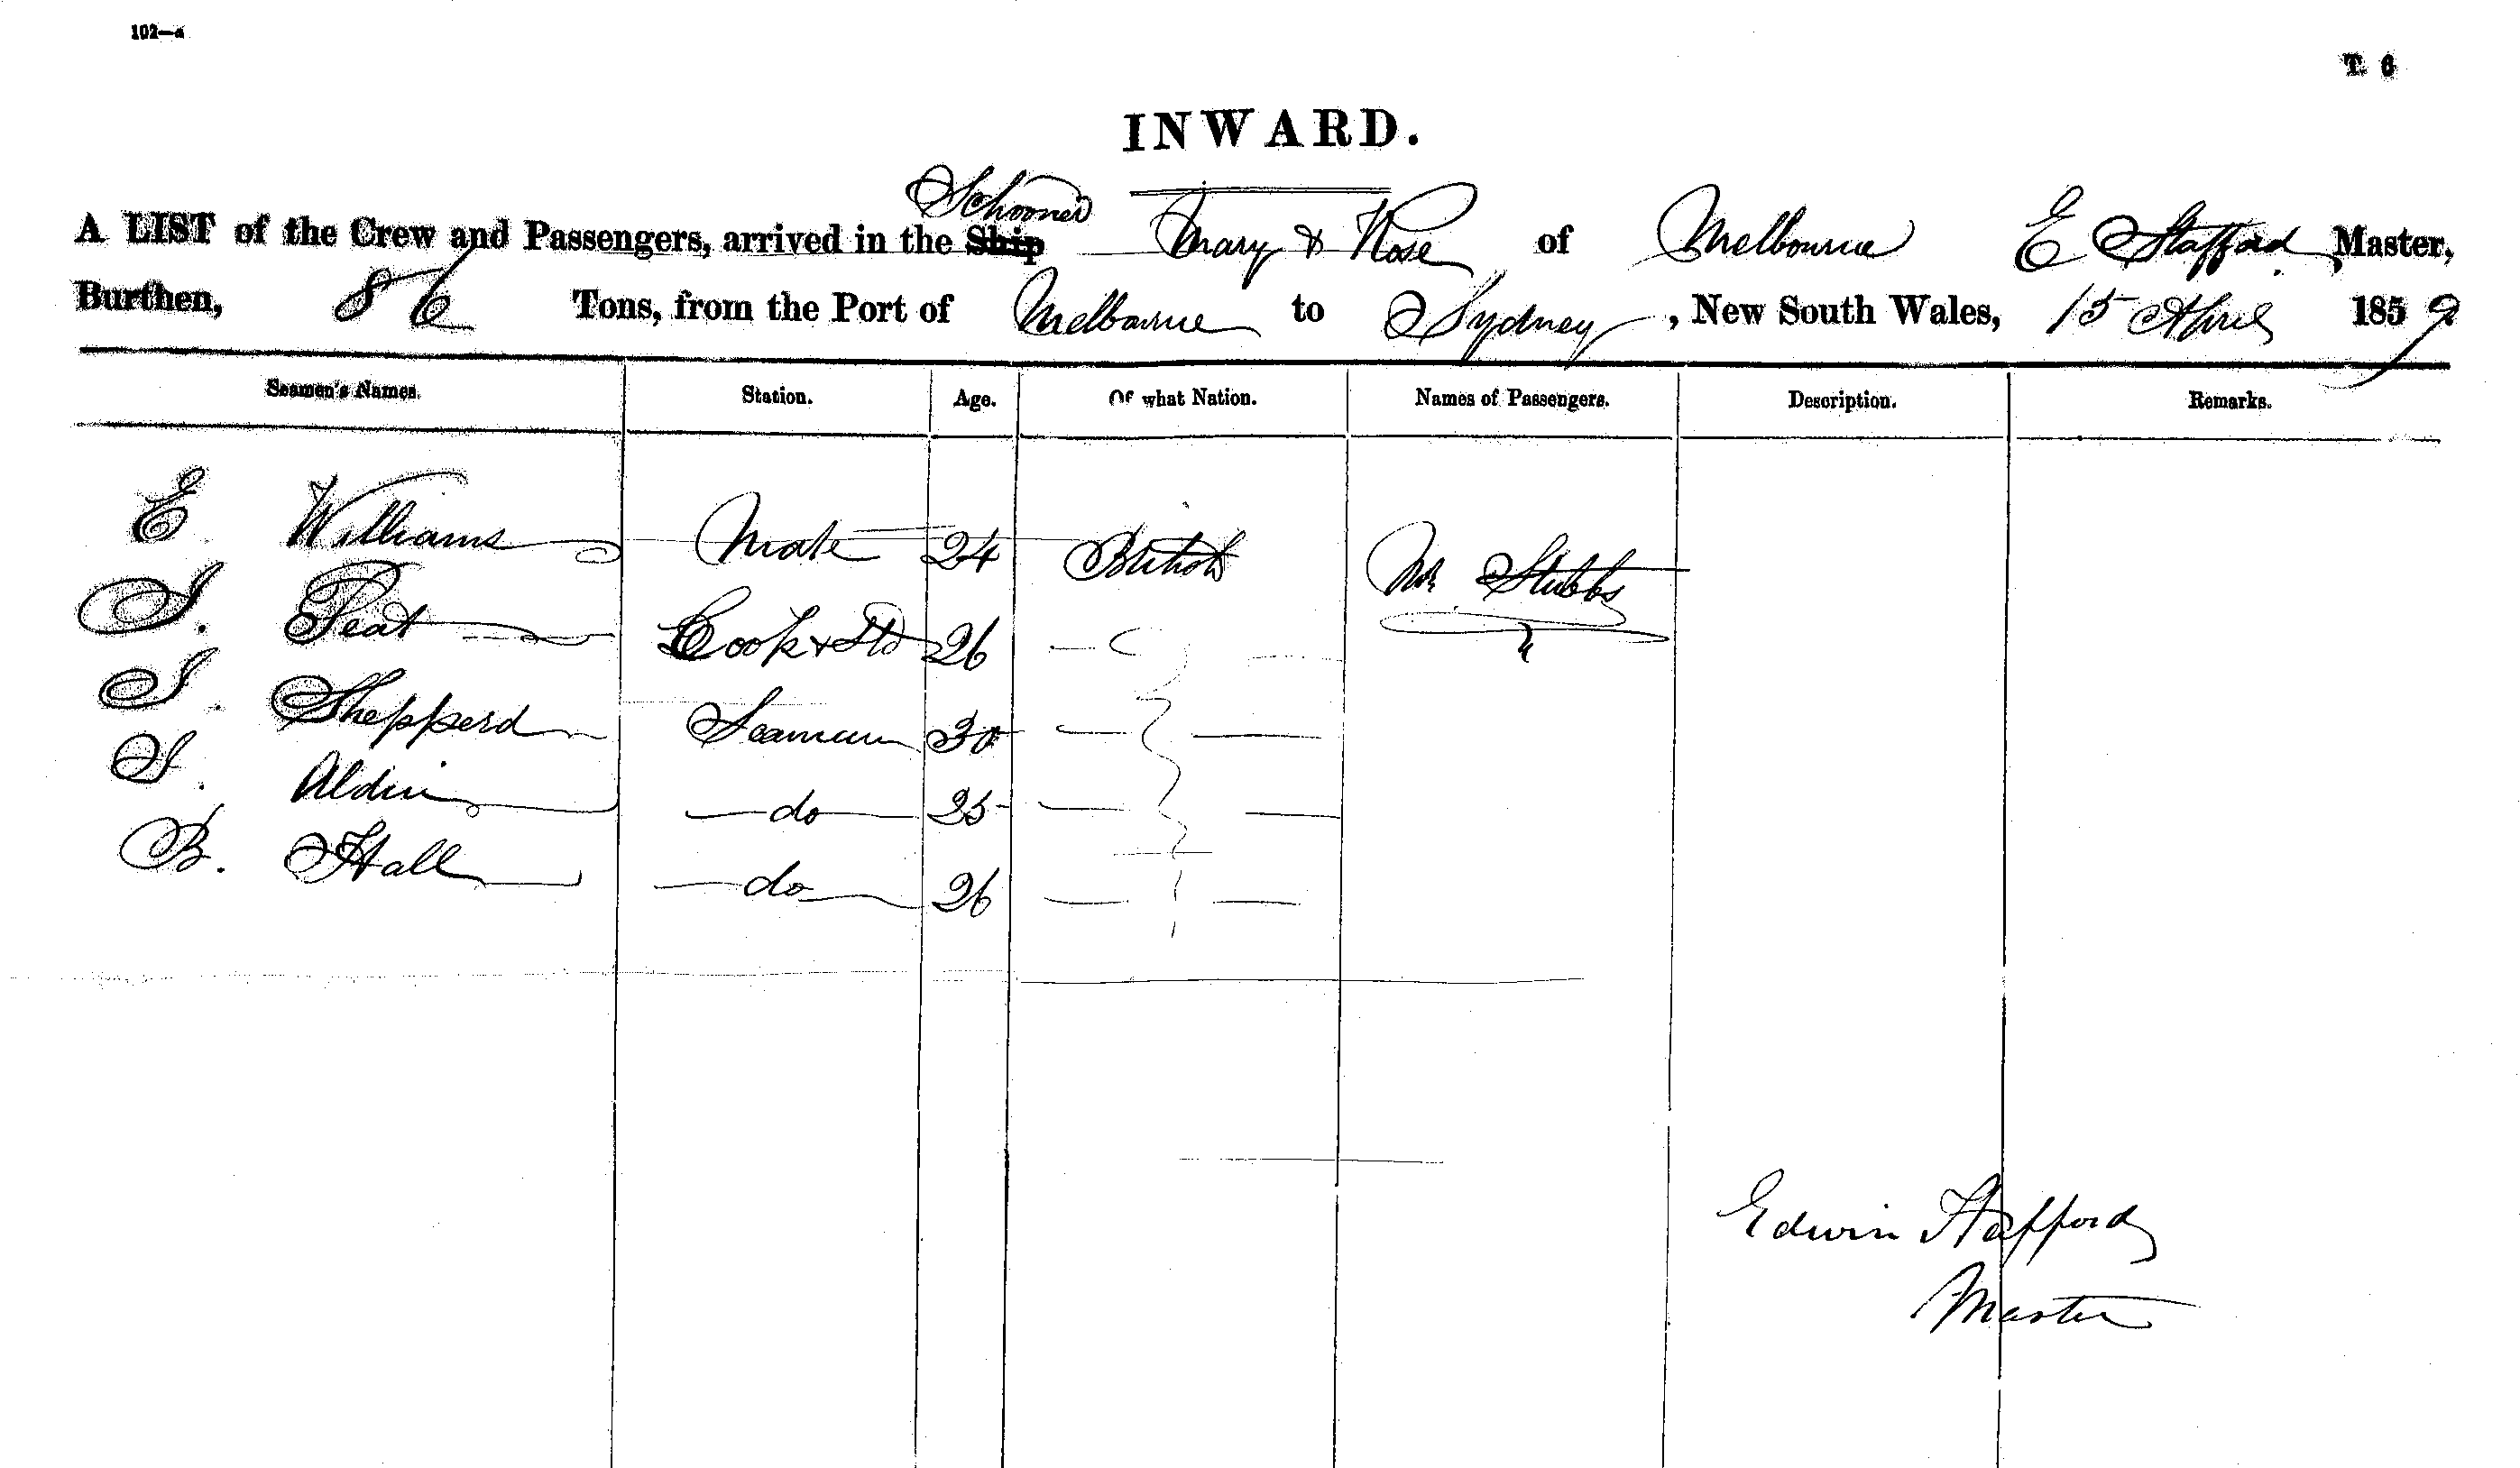 102—a
T. 6
INWARD.
Schooner
A LIST of the Crew and Passengers, arrived in the Ship Mary & Rose of Melbourne E Stafford Master,
Burthen, 86 Tons, from the Port of Melbourne to Sydney, New South Wales, 15 April 1859
Seamen's Names. Station. Age. Of what Nation. Names of Passengers. Description. Remarks.
E Williams Mate 24 British Mr Stubbs
J. Peat Cook & Std 26
J. Shepperd Seaman 30
J. Aldin do 25
B. Hall do 26
Edwin Stafford
Master